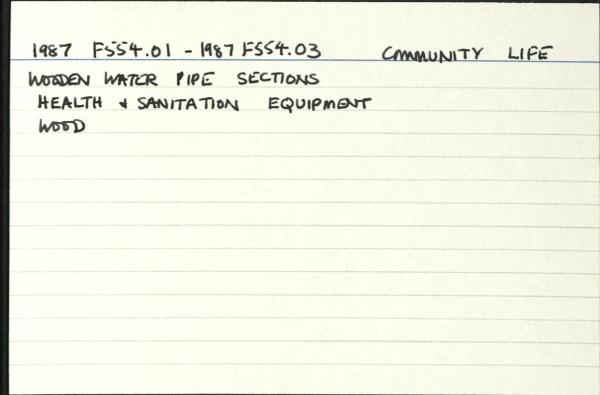 1987 F554.01 - 1987 F554.03 COMMUNITY LIFE
WOODEN WATER PIPE SECTIONS
HEALTH & SANITATION EQUIPMENT
WOOD